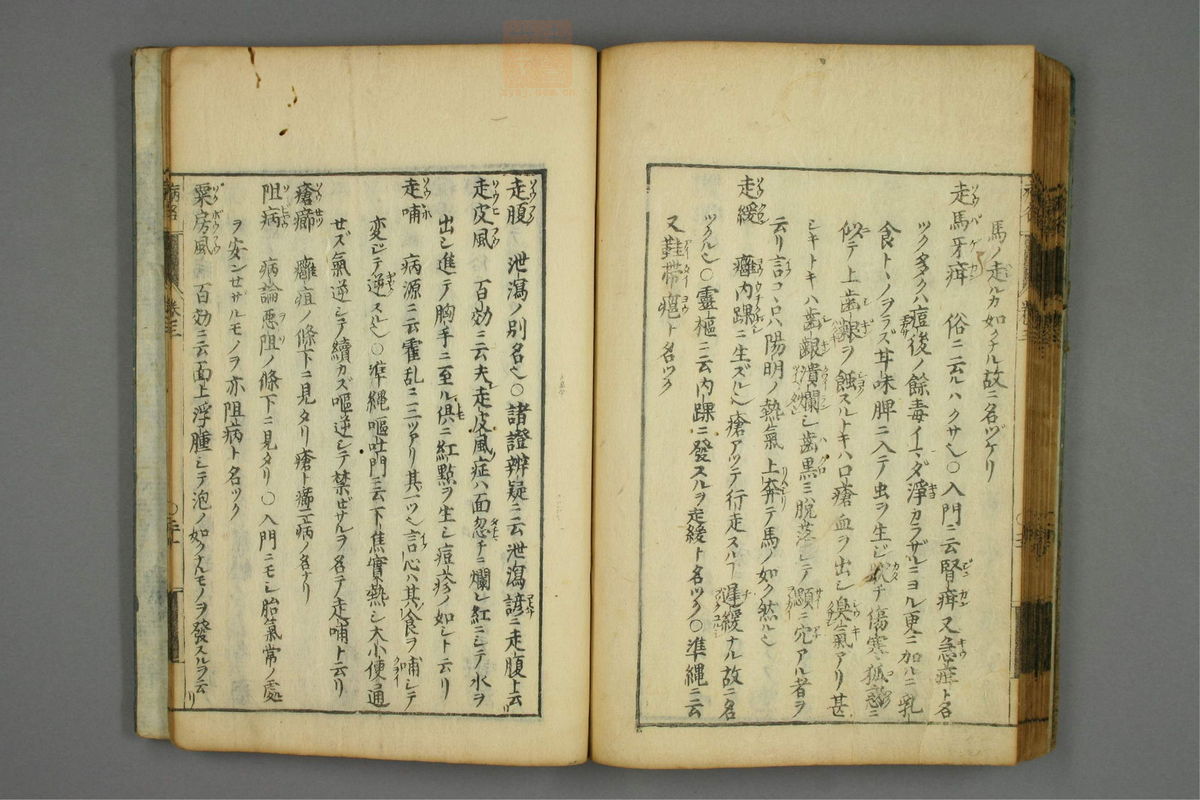 馬ノ走ルカ如クナル故ニ名ヅケリ
走馬牙疳 俗ニ云ルハクサ也○入門ニ云腎疳又急疳ト名
ツク多クハ痘後ノ餘毒イマダ淨カラザルニヨル更ニ加ルニ乳
食トヽノヲラズ甘味脾ニ入テ虫ヲ生ジ傷寒狐惑ニ
似テ上歯齦ヲ蝕スルトキハ口瘡血ヲ出シ臭氣アリ甚
シキトキハ歯齦潰爛シ歯黒ミ脱落シテ顋ニ穴アル者ヲ
云リ言コヽロハ陽明ノ熱氣上奔テ馬ノ如ク然ル也
走緩 癰内踝ニ生ズル也瘡アツテ行走スルヿ遲緩ナル故ニ名
ツクル也○靈樞ニ云内踝ニ發スルヲ走緩ト名ツク○準縄ニ云
又鞋帶疽ト名ツク
走腹 泄瀉ノ別名也○諸證辨疑ニ云泄瀉諺ニ走腹上云リ
走皮風 百効ニ云夫走皮風症ハ面忽チニ爛シ紅ニシテ水ヲ
出シ進テ胸手ニ至ル倶ニ紅點ヲ生シ痘疹ノ如シト云リ
走哺 病源ニ云霍乱ニ三ツアリ其一ツ也言心ハ其食ヲ哺シテ
変ジテ逆スル也○準縄嘔吐門ニ云下焦實熱シ大小便通
せズ氣逆シテ續カズ嘔逆シテ禁ゼザルヲ名テ走哺ト云リ
瘡癤 癰疽ノ條下ニ見タリ瘡ト癤二病ノ名ナリ
阻病 病論悪阻ノ條下ニ見タリ○入門ニモシ胎氣常ノ處
ヲ安ンせサルモノヲ亦阻病ト名ツク
粟房風 百効ニ云面上浮腫シテ泡ノ如クナルモノヲ發スルヲ云リ